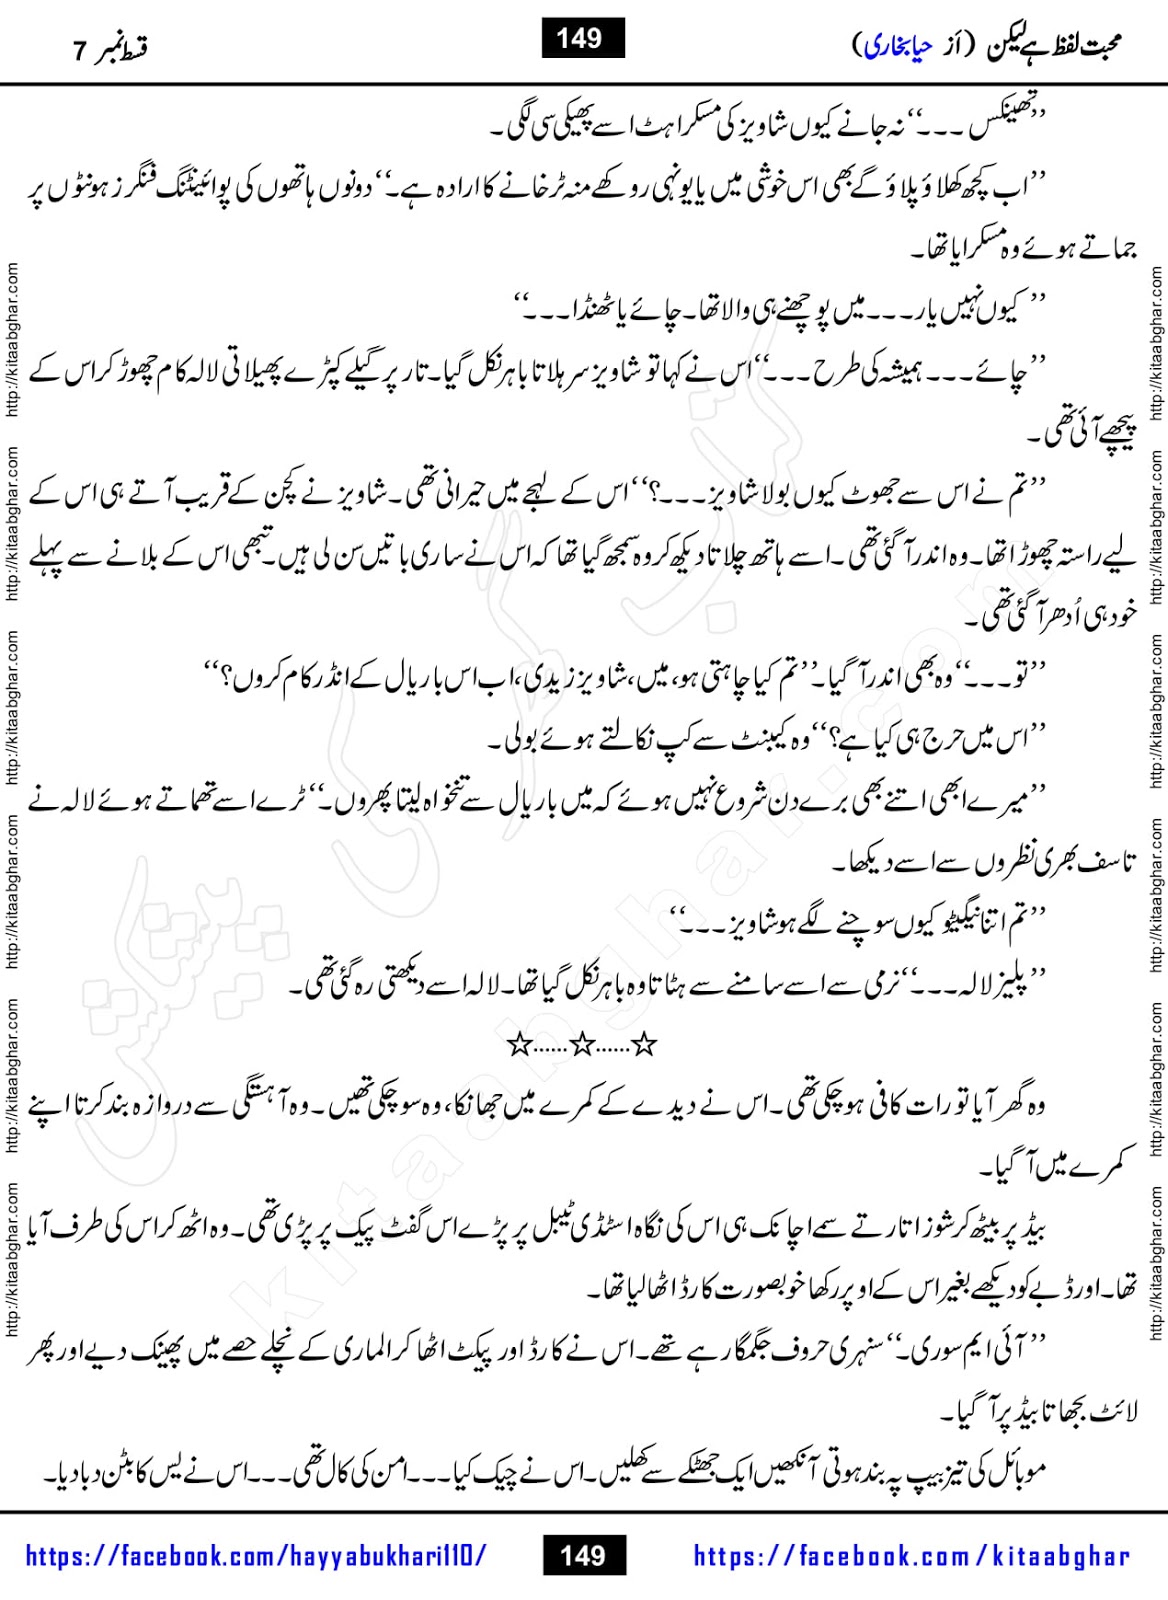 محبت لفظ ہے لیکن (از حیا بخاری)
149
قسط نمبر 7
’’تھینکس ۔۔۔‘‘ نہ جانے کیوں شاویز کی مسکراہٹ اسے پھیکی سی لگی۔
’’اب کچھ کھلاؤ پلاؤ گے بھی اس خوشی میں یا یونہی روکھے منہ ٹرخانے کا ارادہ ہے۔‘‘ دونوں ہاتھوں کی پوائینٹنگ فنگرز ہونٹوں پر
جماتے ہوئے وہ مسکرایا تھا۔
’’ کیوں نہیں یار۔۔۔میں پوچھنے ہی والا تھا۔ چائے یا ٹھنڈا۔۔۔‘‘
’’چائے۔۔۔ہمیشہ کی طرح ۔۔۔‘‘ اس نے کہا تو شاویز سر ہلاتا باہر نکل گیا۔ تار پر گیلے کپڑے پھیلاتی لالہ کام چھوڑ کر اس کے
پیچھے آئی تھی۔
’’تم نے اس سے جھوٹ کیوں بولا شاویز۔۔۔؟‘‘ اس کے لہجے میں حیرانی تھی۔ شاویز نے کچن کے قریب آتے ہی اس کے
لیے راستہ چھوڑا تھا۔ وہ اندر آ گئی تھی۔ اسے ہاتھ چلاتا دیکھ کر وہ سمجھ گیا تھا کہ اس نے ساری باتیں سن لی ہیں۔ تبھی اس کے بلانے سے پہلے
خود ہی اُدھر آ گئی تھی۔
’’تو۔۔۔‘‘ وہ بھی اندر آ گیا۔ ’’تم کیا چاہتی ہو، میں، شاویز زیدی، اب اس باریال کے انڈر کام کروں؟‘‘
’’اس میں حرج ہی کیا ہے؟‘‘ وہ کیبنٹ سے کپ نکالتے ہوئے بولی۔
’’میرے ابھی اتنے بھی برے دن شروع نہیں ہوئے کہ میں باریال سے تنخواہ لیتا پھروں۔‘‘ ٹرے اسے تھماتے ہوئے لالہ نے
تاسف بھری نظروں سے اسے دیکھا۔
’’تم اتنا نیگیٹو کیوں سوچنے لگے ہو شاویز۔۔۔‘‘
’’پلیز لالہ۔۔۔‘‘ نرمی سے اسے سامنے سے ہٹاتا وہ باہر نکل گیا تھا۔ لالہ اسے دیکھتی رہ گئی تھی۔
☆......☆......☆
وہ گھر آیا تو رات کافی ہو چکی تھی۔ اس نے دیدے کے کمرے میں جھانکا، وہ سو چکی تھیں۔ وہ آہستگی سے دروازہ بند کرتا اپنے
کمرے میں آ گیا۔
بیڈ پر بیٹھ کر شوز اتارتے سمے اچانک ہی اس کی نگاہ اسٹڈی ٹیبل پر پڑے اس گفٹ پیک پر پڑی تھی۔ وہ اٹھ کر اس کی طرف آیا
تھا۔ اور ڈبے کو دیکھے بغیر اس کے اوپر رکھا خوبصورت کارڈ اٹھا لیا تھا۔
’’آئی ایم سوری۔‘‘ سنہری حروف جگمگا رہے تھے۔ اس نے کارڈ اور پیکٹ اٹھا کر الماری کے نچلے حصے میں پھینک دیے اور پھر
لائٹ بجھاتا بیڈ پر آ گیا۔
موبائل کی تیز بیپ پہ بند ہوتی آنکھیں ایک جھٹکے سے کھلیں۔ اس نے چیک کیا۔۔۔امن کی کال تھی۔۔۔اس نے یس کا بٹن دبا دیا۔
http://kitaabghar.com http://kitaabghar.com http://kitaabghar.com http://kitaabghar.com http://kitaabghar.com http://kitaabghar.com
http://kitaabghar.com http://kitaabghar.com http://kitaabghar.com http://kitaabghar.com http://kitaabghar.com http://kitaabghar.com
کتاب گھر کی پیشکش
kitaabghar.com
https://facebook.com/hayyabukhari110/
149
https://facebook.com/kitaabghar